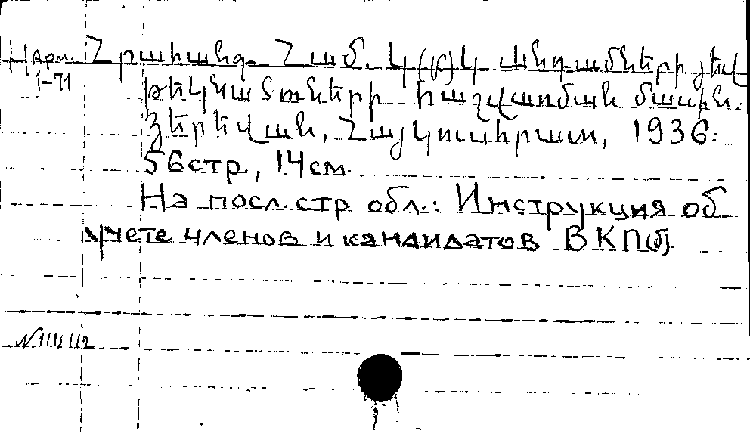 Հրահանգ Համ. Կ(բ)Կ անդամների յեվ
1-71
թեկնածուների հաշվառման մասին.
Յերեվան, Հայկուսհրատ, 1936:
56стр, 14см
На посл.стр обл.: Инструкция об
учете членов и кандидатов ВКП(б)